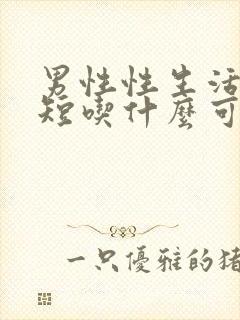 男性性生活
短喫什麼可
一只優雅的猪